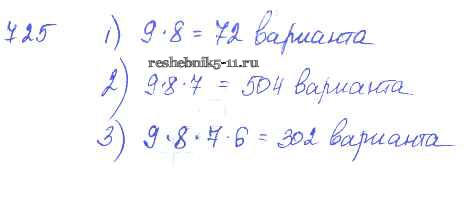 725 1) 9·8 = 72 варианта
reshebnik5-11.ru
2) 9·8·7 = 504 варианта
3) 9·8·7·6 = 302 варианта